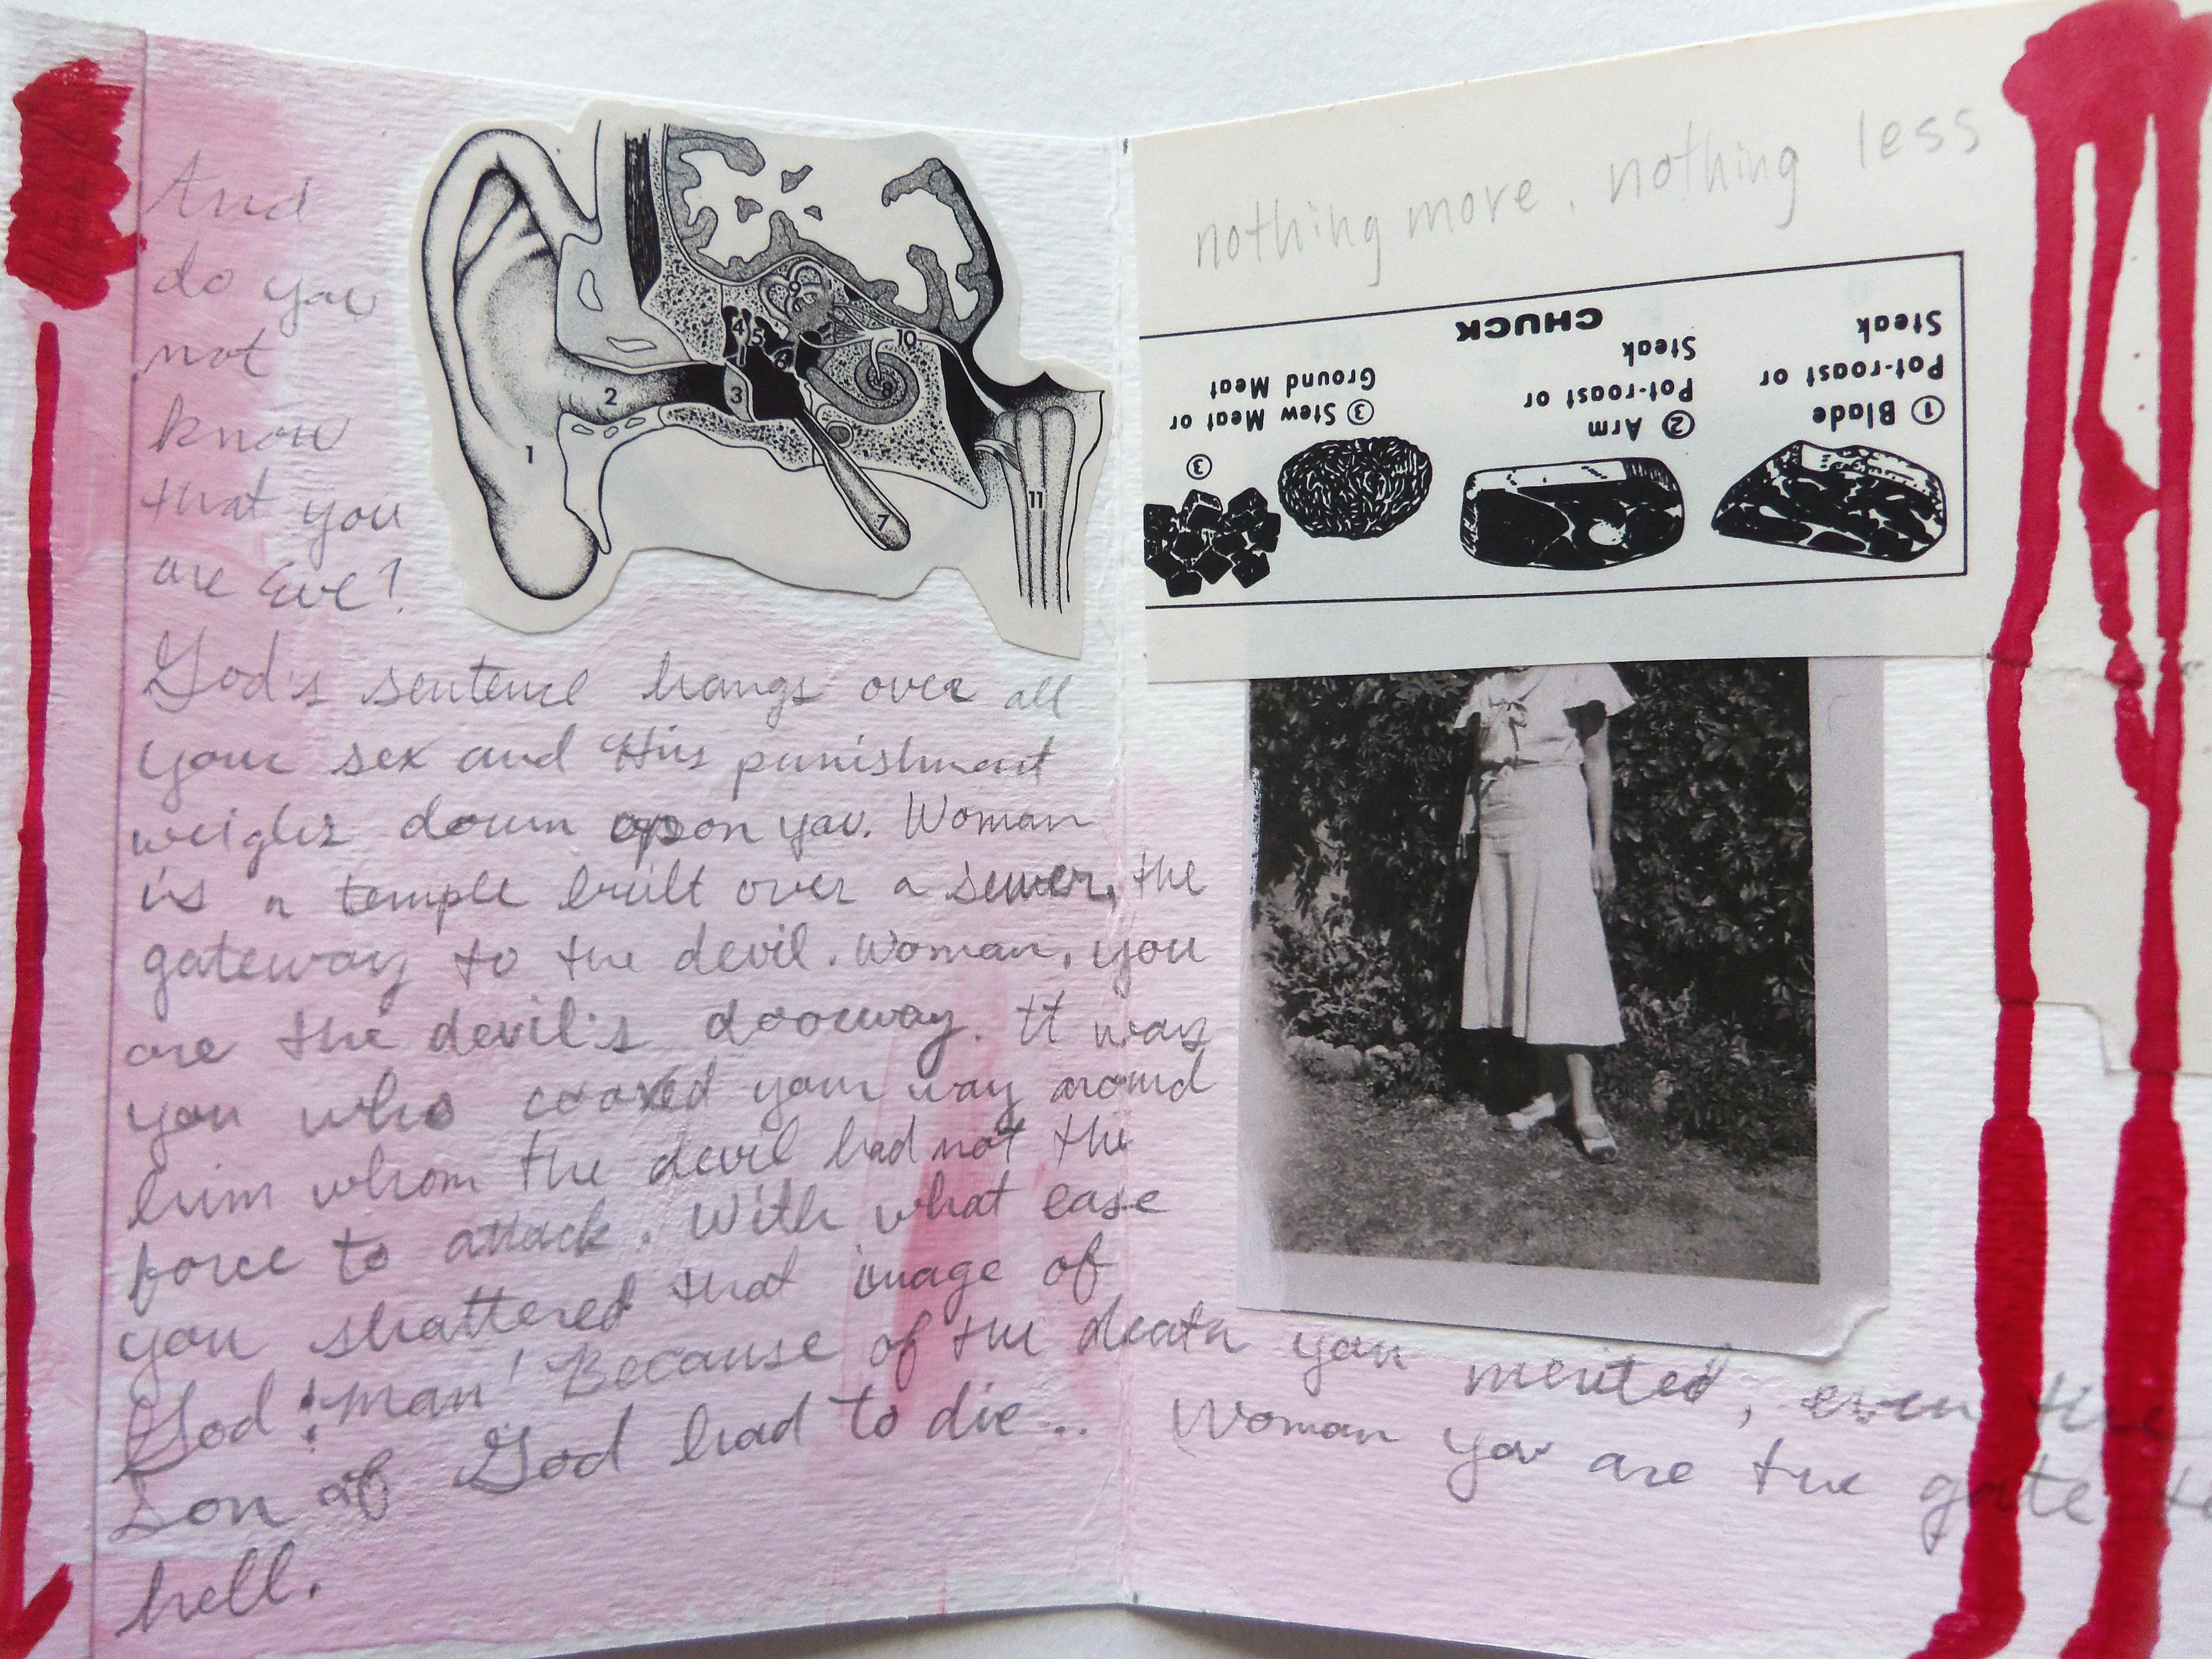 And
do you
not
know
that you
are Eve?
God's sentence hangs over all
your sex and His punishment
weighs down upon you. Woman
is a temple built over a sewer, the
gateway to the devil. Woman, you
are the devil's doorway. It was
you who coaxed your way around
him whom the devil had not the
force to attack. With what ease
you shattered that image of
God: Man! Because of the death you merited, even the
Son of God had to die... Woman you are the gate to
hell.
1
2
3
4
5
6
7
8
9
10
11
nothing more, nothing less
CHUCK
① Blade
Pot-roast or
Steak
② Arm
Pot-roast or
Steak
③ Stew Meat or
Ground Meat
③